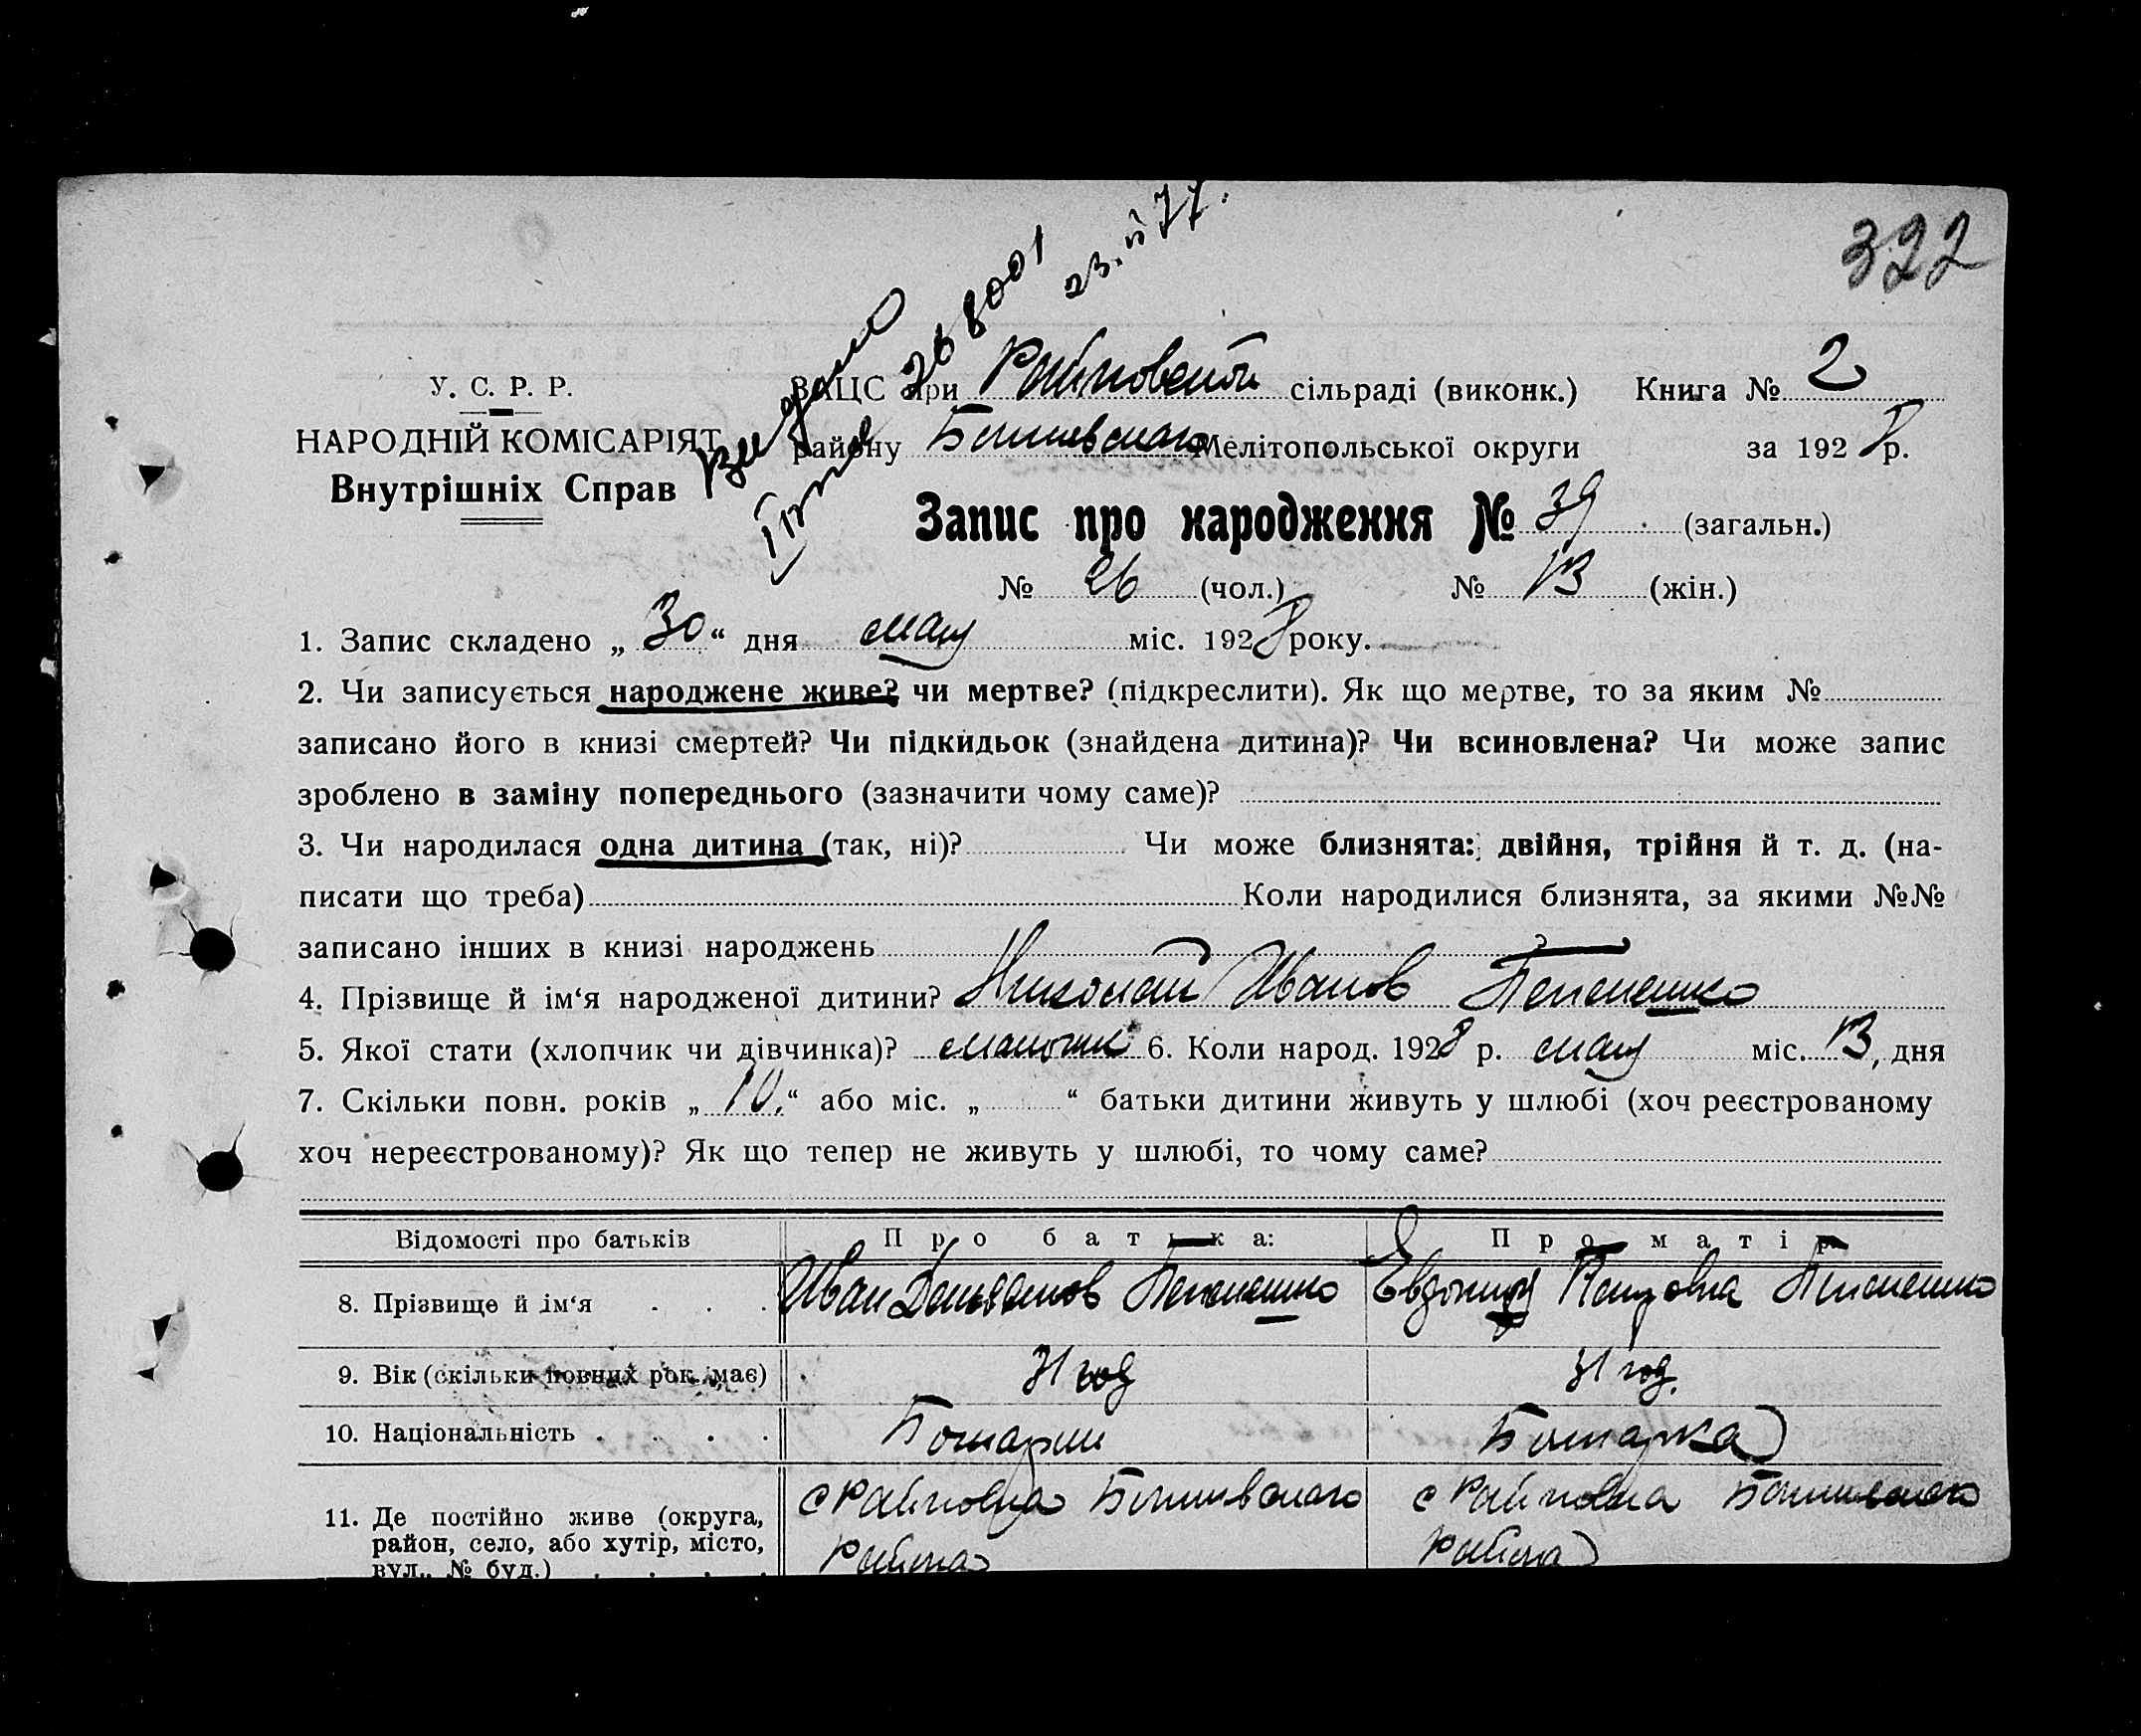 322
23.II 77.
268001
У. С. Р. Р.
ЗАЦС при Райновской сільраді (виконк.) Книга № 2
НАРОДНІЙ КОМІСАРІЯТ
району Мелітопольської округи за 1928 р.
Внутрішніх Справ
Запис про народження № 39 (загальн.)
№ 26 (чол.) № 13 (жін.)
1. Запис складено „ 30 “ дня мая міс. 1928 року.
2. Чи записується народжене живе? чи мертве? (підкреслити). Як що мертве, то за яким №
записано його в книзі смертей? Чи підкидьок (знайдена дитина)? Чи всиновлена? Чи може запис
зроблено в заміну попереднього (зазначити чому саме)?
3. Чи народилася одна дитина (так, ні)? Чи може близнята: двійня, трійня й т. д. (на-
писати що треба) Коли народилися близнята, за якими №№
записано інших в книзі народжень
4. Прізвище й ім‘я народженої дитини? Николай Иванов
5. Якої стати (хлопчик чи дівчинка)? мальчик 6. Коли народ. 1928 р. мая міс. 13, дня
7. Скільки повн. років „ 10 “ або міс. „ “ батьки дитини живуть у шлюбі (хоч реєстрованому
хоч нереєстрованому)? Як що тепер не живуть у шлюбі, то чому саме?
Відомості про батьків Про батька: Про матір
8. Прізвище й ім‘я Иван Евдокия Петровна
9. Вік (скільки повних рок. має) 31 год 31 год.
10. Національність Болгарин Болгарка
11. Де постійно живе (округа, с Райновка с Райновка
район, село, або хутір, місто, района района
вул., № буд.)